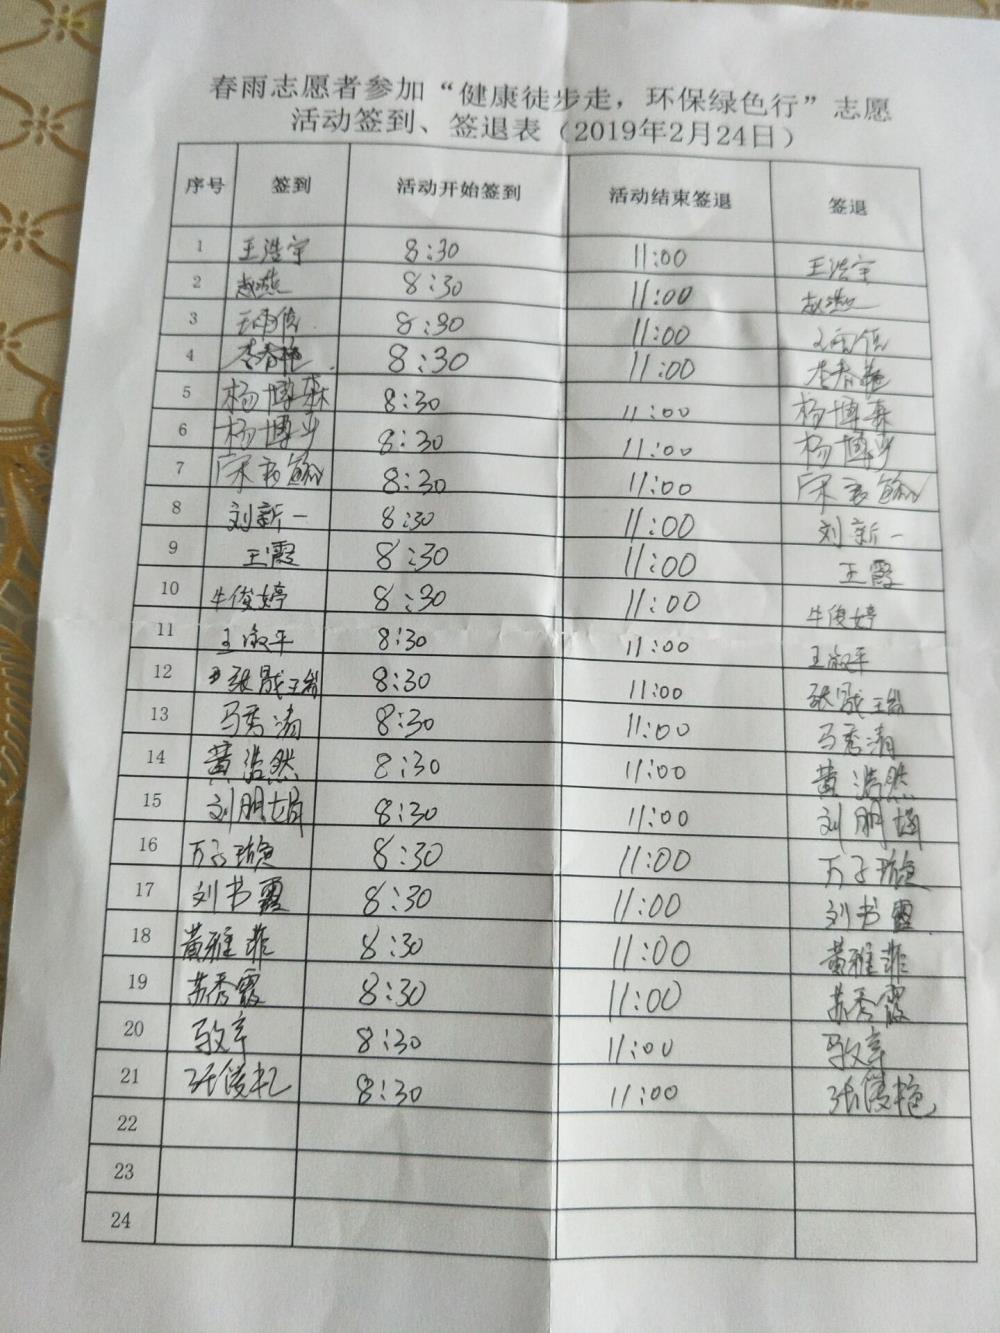 春雨志愿者参加“健康徒步走，环保绿色行”志愿
活动签到、签退表（2019年2月24日）
序号 签到 活动开始签到 活动结束签退 签退
1 王浩宇 8:30 11:00 王浩宇
2 赵燕 8:30 11:00 赵燕
3 8:30 11:00
4 李春艳 8:30 11:00 李春艳
5 杨博森 8:30 11:00 杨博森
6 杨博步 8:30 11:00 杨博步
7 宋 8:30 11:00 宋
8 刘新一 8:30 11:00 刘新一
9 王霞 8:30 11:00 王霞
10 牛俊婷 8:30 11:00 牛俊婷
11 王淑平 8:30 11:00 王淑平
12 张晟 8:30 11:00 张晟
13 马秀清 8:30 11:00 马秀清
14 黄浩然 8:30 11:00 黄浩然
15 刘朋娟 8:30 11:00 刘朋娟
16 万子璇 8:30 11:00 万子璇
17 刘书霞 8:30 11:00 刘书霞
18 黄雅菲 8:30 11:00 黄雅菲
19 苏秀霞 8:30 11:00 苏秀霞
20 8:30 11:00
21 张俊艳 8:30 11:00 张俊艳
22
23
24